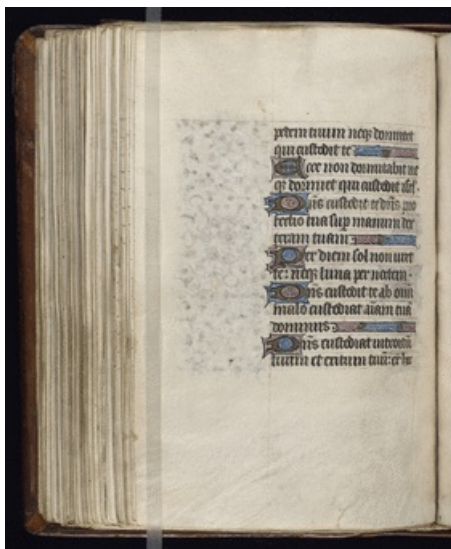 pedem tuum neq; dormitet
qui custodit te
Ecce non dormitabit ne
q; dormiet qui custodit isrl.
Dn̄s custodit te dn̄s pro
tectio tua sup manum dex
teram tuam
Per diem sol non uret
te: neq; luna per noctem.
Dn̄s custodit te ab omi
malo custodiat aīam tuā
dominus
Dn̄s custodiat introitū
tuum et exitum tuū: ex hoc